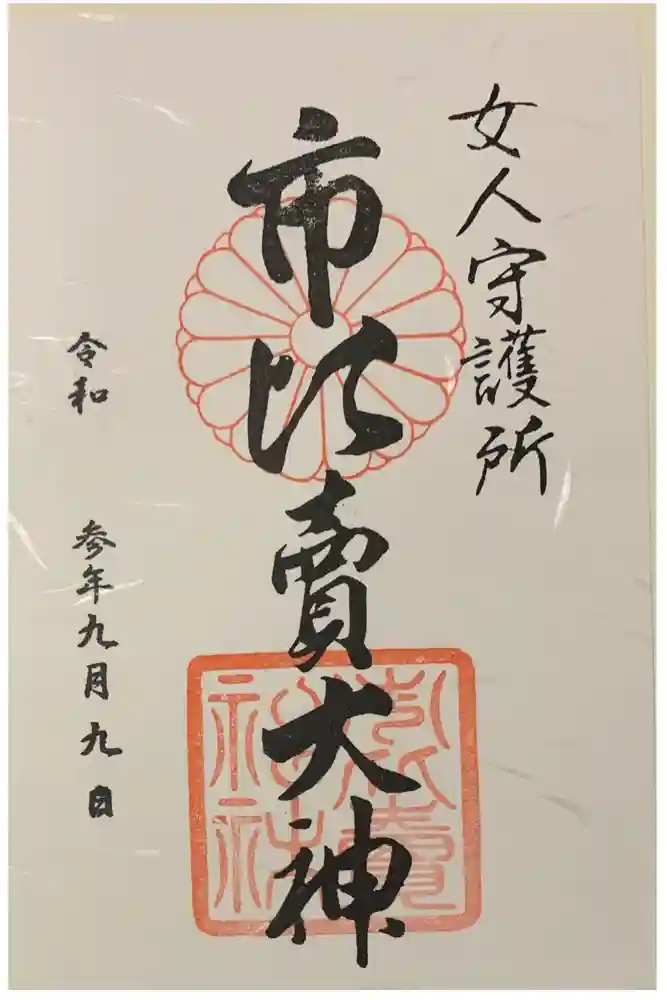 女人守護所
市比賣大神
市比賣神社
令和 参年九月九日